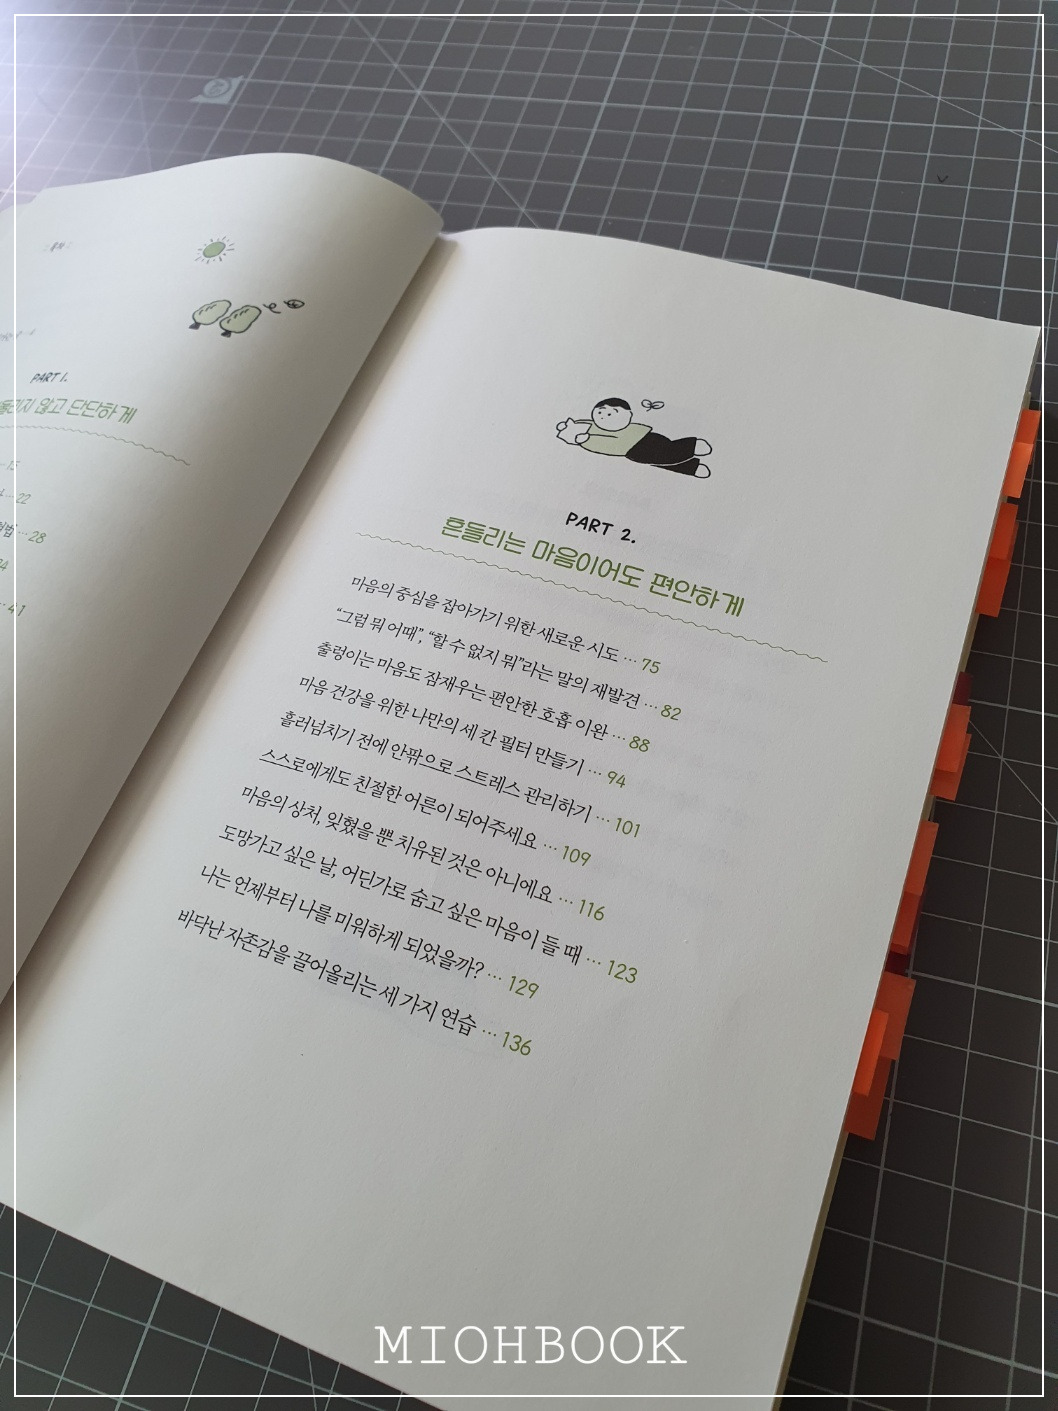 PART 1.
않고 단단하게
15
22
28
41
PART 2.
흔들리는 마음이어도 편안하게
마음의 중심을 잡아가기 위한 새로운 시도 … 75
“그럼 뭐 어때”, “할 수 없지 뭐”라는 말의 재발견 … 82
출렁이는 마음도 잠재우는 편안한 호흡 이완 … 88
마음 건강을 위한 나만의 세 칸 필터 만들기 … 94
흘러넘치기 전에 안팎으로 스트레스 관리하기 … 101
스스로에게도 친절한 어른이 되어주세요 … 109
마음의 상처, 잊혔을 뿐 치유된 것은 아니에요 … 116
도망가고 싶은 날, 어딘가로 숨고 싶은 마음이 들 때 … 123
나는 언제부터 나를 미워하게 되었을까? … 129
바닥난 자존감을 끌어올리는 세 가지 연습 … 136
MIOHBOOK